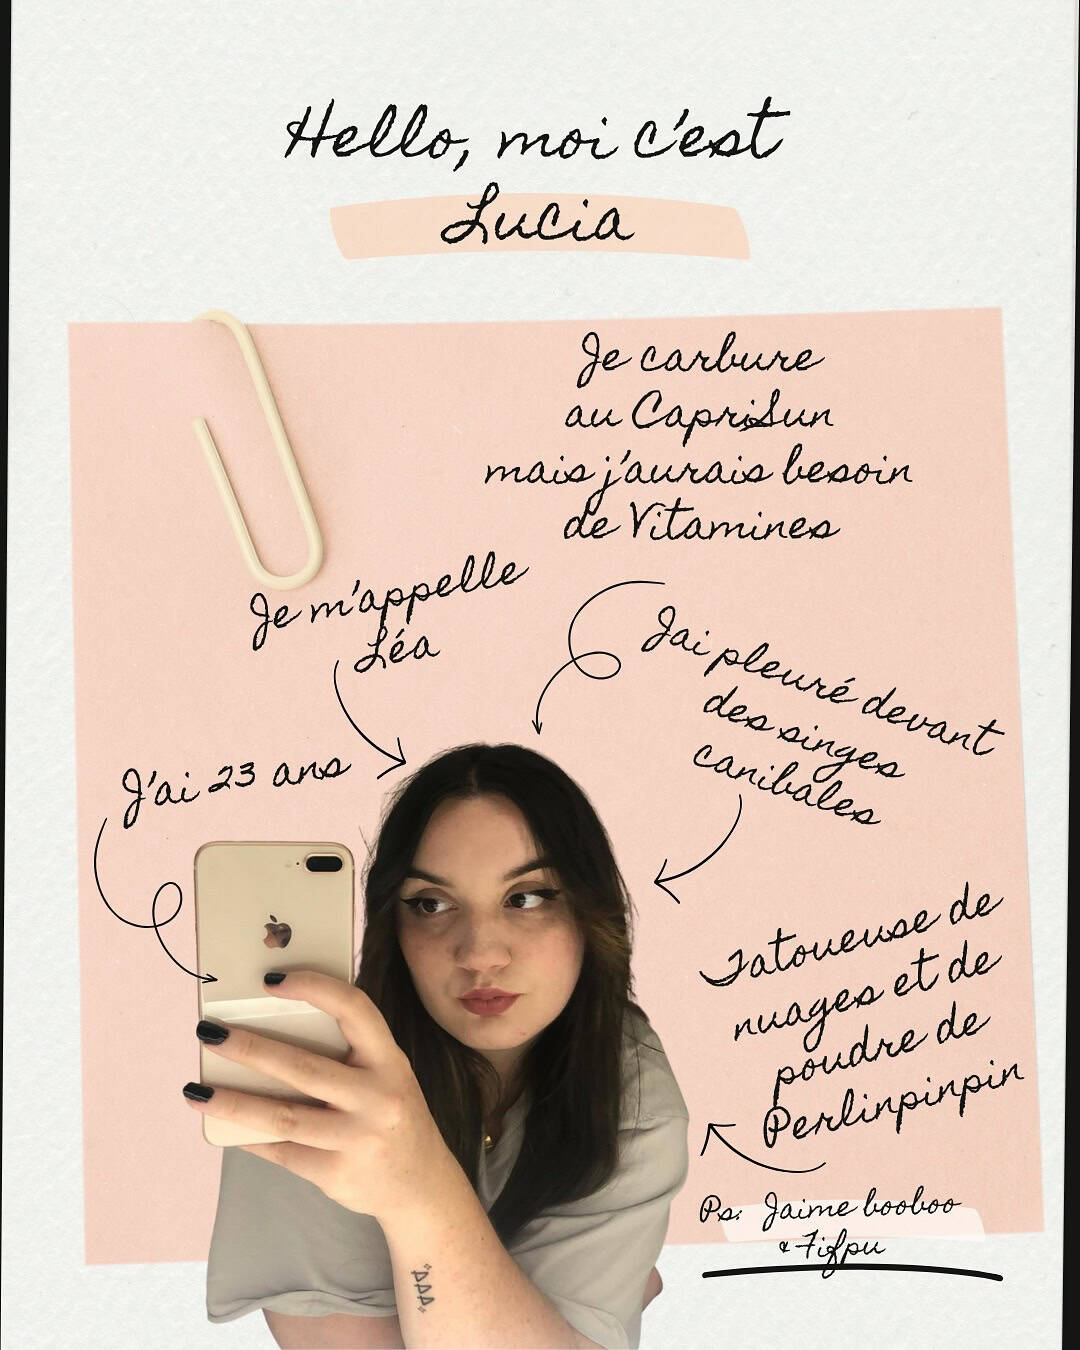 Hello, moi c'est
Lucia
Je carbure
au CapriSun
mais j'aurais besoin
de Vitamines
Je m'appelle
Léa
Jai pleuré devant
des singes
canibales
J'ai 23 ans
Tatoueuse de
nuages et de
poudre de
Perlinpinpin
Ps: Jaime booboo
& Fifpu